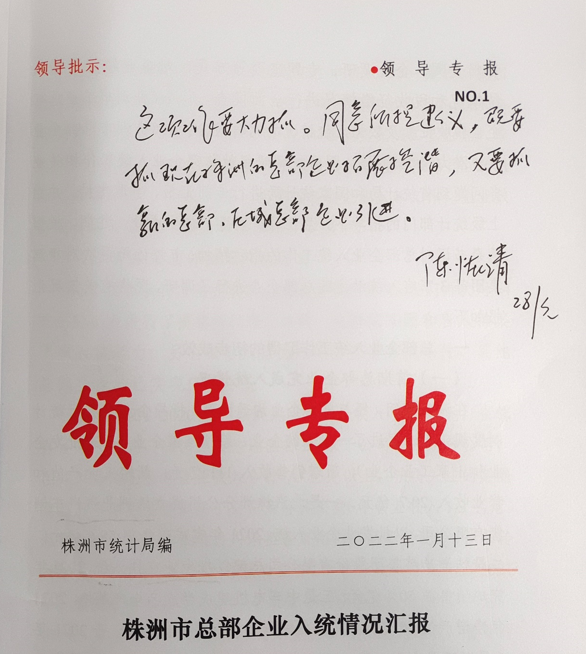 领导批示：
●领 导 专 报
NO.1
这项工作要大力抓。同意所提建议，既要
抓现在株洲的总部企业拓展挖潜，又要抓
新的总部、区域总部企业引进。
陈恢清
28/元
领导专报
株洲市统计局编
二〇二二年一月十三日
株洲市总部企业入统情况汇报